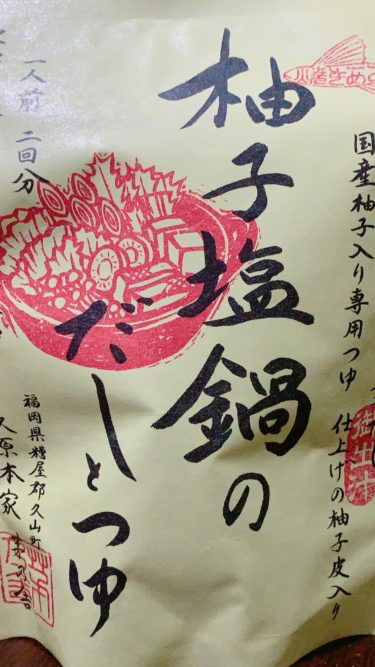 国産柚子入り専用つゆ 仕上げの柚子皮入り
柚子塩鍋の
だしとつゆ
一人前 二回分
福岡県糟屋郡久山町
久原本家 茅乃舎